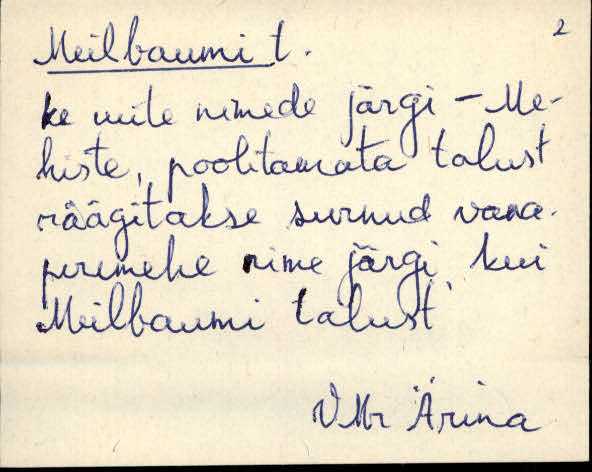 2
Meilbaumi t.
ke mite nimede järgi - Me-
histe, poolitamata talust
räägitakse surnud vana-
peremehe nime järgi, kui
Meilbaumi talust
VMr Ärina